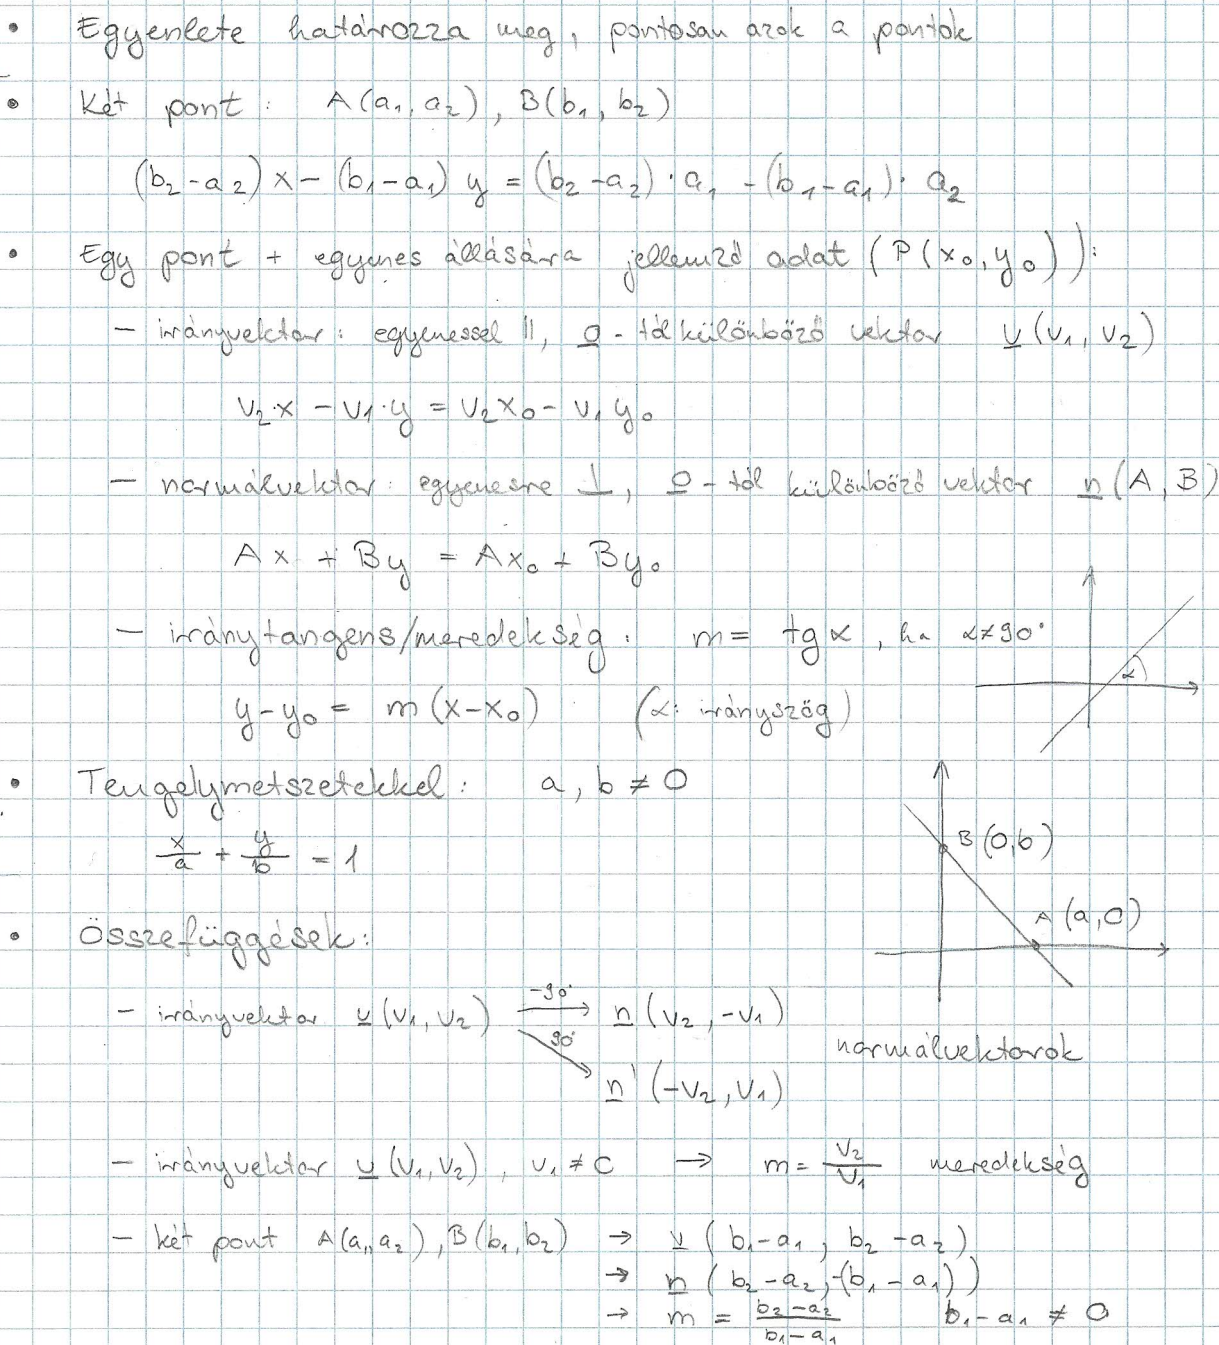 • Egyenlete határozza meg, pontosan azok a pontok
• Két pont: A(a₁, a₂), B(b₁, b₂)
(b₂-a₂)x - (b₁-a₁)y = (b₂-a₂)·a₁ - (b₁-a₁)·a₂
• Egy pont + egyenes állására jellemző adat (P(x₀, y₀)):
- irányvektor: egyenessel ||, 0-tól különböző vektor v(v₁, v₂)
v₂·x - v₁·y = v₂x₀ - v₁y₀
- normálvektor: egyenesre ⊥, 0-tól különböző vektor n(A, B)
Ax + By = Ax₀ + By₀
- iránytangens/meredekség: m = tgα, ha α≠90°
α
y-y₀ = m(x-x₀) (α: irányszög)
• Tengelymetszetekkel: a, b ≠ 0
x/a + y/b = 1
B(0,b)
A(a,0)
• Összefüggések:
- irányvektor v(v₁, v₂) -90° → n(v₂, -v₁)
90° → n'(-v₂, v₁)
normálvektorok
- irányvektor v(v₁, v₂), v₁ ≠ 0 → m = v₂/v₁ meredekség
- két pont A(a₁, a₂), B(b₁, b₂) → v(b₁-a₁, b₂-a₂)
→ n(b₂-a₂, -(b₁-a₁))
→ m = b₂-a₂/b₁-a₁ b₁-a₁ ≠ 0